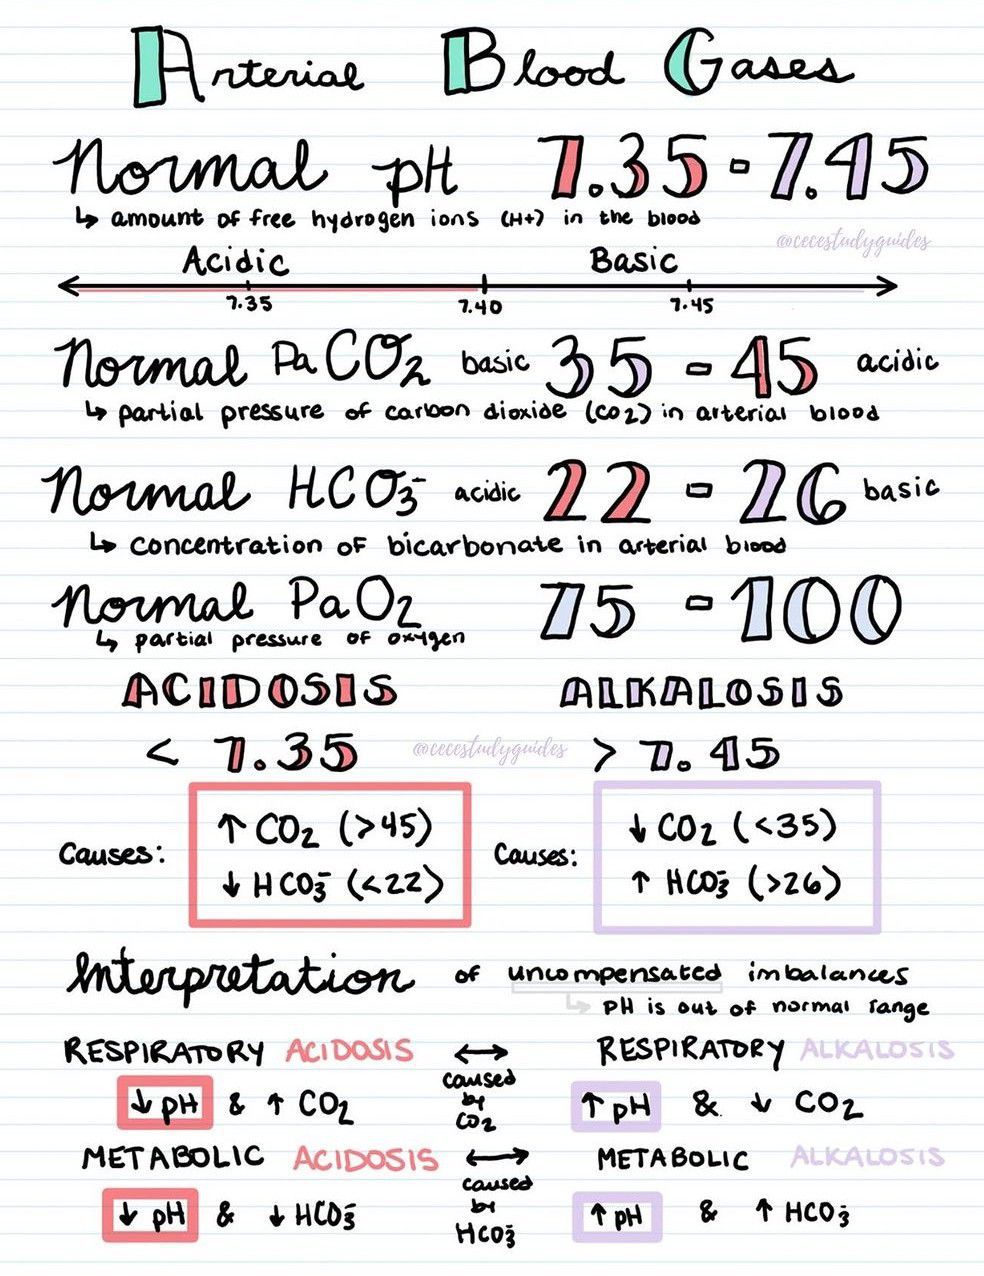 Arterial Blood Gases
Normal pH 7.35 - 7.45
↳ amount of free hydrogen ions (H+) in the blood
@cecestudyguides
Acidic Basic
7.35 7.40 7.45
Normal PaCO2 basic 35 - 45 acidic
↳ partial pressure of carbon dioxide (CO2) in arterial blood
Normal HCO3- acidic 22 - 26 basic
↳ concentration of bicarbonate in arterial blood
Normal PaO2 75 - 100
↳ partial pressure of oxygen
ACIDOSIS ALKALOSIS
< 7.35 @cecestudyguides > 7.45
Causes: ↑ CO2 (>45)
↓ HCO3- (<22)
Causes: ↓ CO2 (<35)
↑ HCO3- (>26)
Interpretation of uncompensated imbalances
↳ pH is out of normal range
RESPIRATORY ACIDOSIS ↔ RESPIRATORY ALKALOSIS
↓ pH & ↑ CO2 caused by CO2 ↑ pH & ↓ CO2
METABOLIC ACIDOSIS ↔ METABOLIC ALKALOSIS
↓ pH & ↓ HCO3- caused by HCO3- ↑ pH & ↑ HCO3-